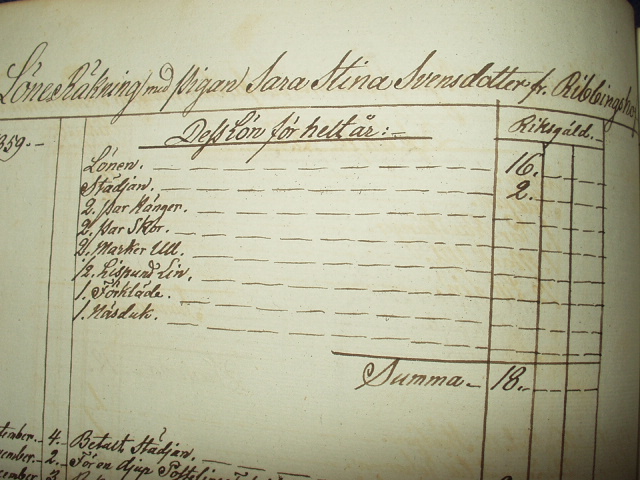 Löne Räkning med Pigan Sara Stina Svensdotter fr. Ribbings
359.-
Dess Lön för helt år:-
Riksgäld.-
Lönen. 16.
Städjan. 2.
2. Par Kängor.
2. Par Skor.
2. Marker Ull.
1/2. Lispund Lin.
1. Förkläde.
1. Näsduk.
Summa.- 18.
4.- Betalt Städjan.
2.- För en djup